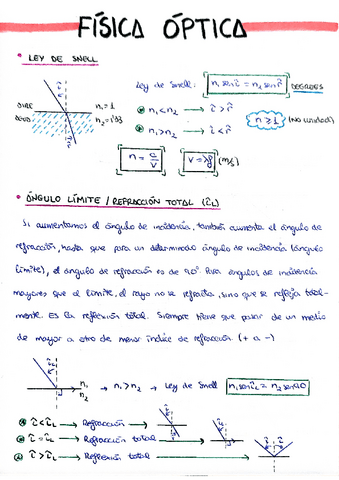 FÍSICA ÓPTICA
• LEY DE SNELL
Ley de Snell: n₁ sen î = n₂ sen r̂ DEGREES
aire n₁=1
agua n₂=1'33
n₁<n₂ → î > r̂
n₁>n₂ → î < r̂
n ≥ 1 (No unidad)
n = c/v
v = λf (m/s)
• ÁNGULO LÍMITE / REFRACCIÓN TOTAL (î_L)
Si aumentamos el ángulo de incidencia, también aumenta el ángulo de
refracción, hasta que para un determinado ángulo de incidencia (ángulo
límite), el ángulo de refracción es de 90°. Para ángulos de incidencia
mayores que el límite, el rayo no se refracta, sino que se refleja total-
mente. Es la reflexión total. Siempre tiene que pasar de un medio
de mayor a otro de menor índice de refracción. (+ a -)
n₁
n₂
→ n₁>n₂ → Ley de Snell n₁ sen î_L = n₂ sen 90
î < î_L → Refracción
î = î_L → Refracción total
î > î_L → Reflexión total